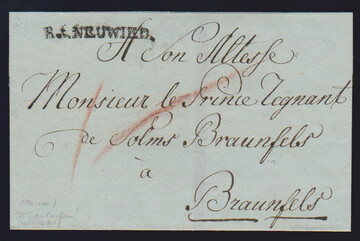 R.4.NEUWIED.
A Son Altesse
Monsieur le Prince Regnant
de Solms Braunfels
à
Braunfels